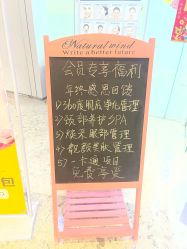 Natural wind
Write a better future
会员专享福利
年终感恩回馈
1)360底眼层净化管理
2)颈部养护SPA
3)烟采眼部管理
4)靓颜美肤管理
5)一卡通项目
免费享受
包